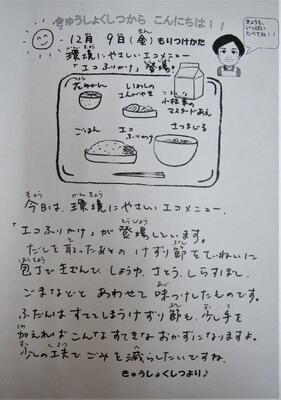 きゅうしょくしつから こんにちは！！
きょうも、
いっぱい
たべてね！！
12月 9日(金) もりつけかた
環境にやさしいエコメニュー
「エコふりかけ」登場！
花みかん
いわしの
小松菜の
マスタードあえ
ごはん
エコ
ふりかけ
さつまじる
今日は、環境にやさしいエコメニュー、
「エコふりかけ」が登場しています。
だしを取ったあとのけずり節をていねいに
包丁できざんで、しょうゆ、さとう、しらすぼし、
ごまなどとあわせて味つけしたものです。
ふだんはすててしまうけずり節も、少し手を
加えればこんなすてきなおかずになりますよ。
少しの工夫でごみを減らしたいですね。
きゅうしょくしつより♪